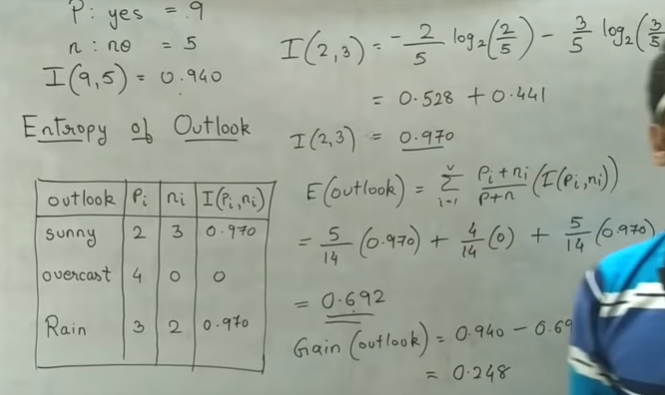 P: yes = 9
n: no = 5
I(9,5) = 0.940
Entropy of Outlook
outlook Pi ni I(Pi,ni)
sunny 2 3 0.970
overcast 4 0 0
Rain 3 2 0.970
I(2,3) = - 2/5 log₂(2/5) - 3/5 log₂(3/5
= 0.528 + 0.441
I(2,3) = 0.970
E(outlook) = Σ^v_{i=1} Pi+ni/P+n (I(Pi,ni))
= 5/14 (0.970) + 4/14 (0) + 5/14 (0.970)
= 0.692
Gain (outlook) = 0.940 - 0.69
= 0.248